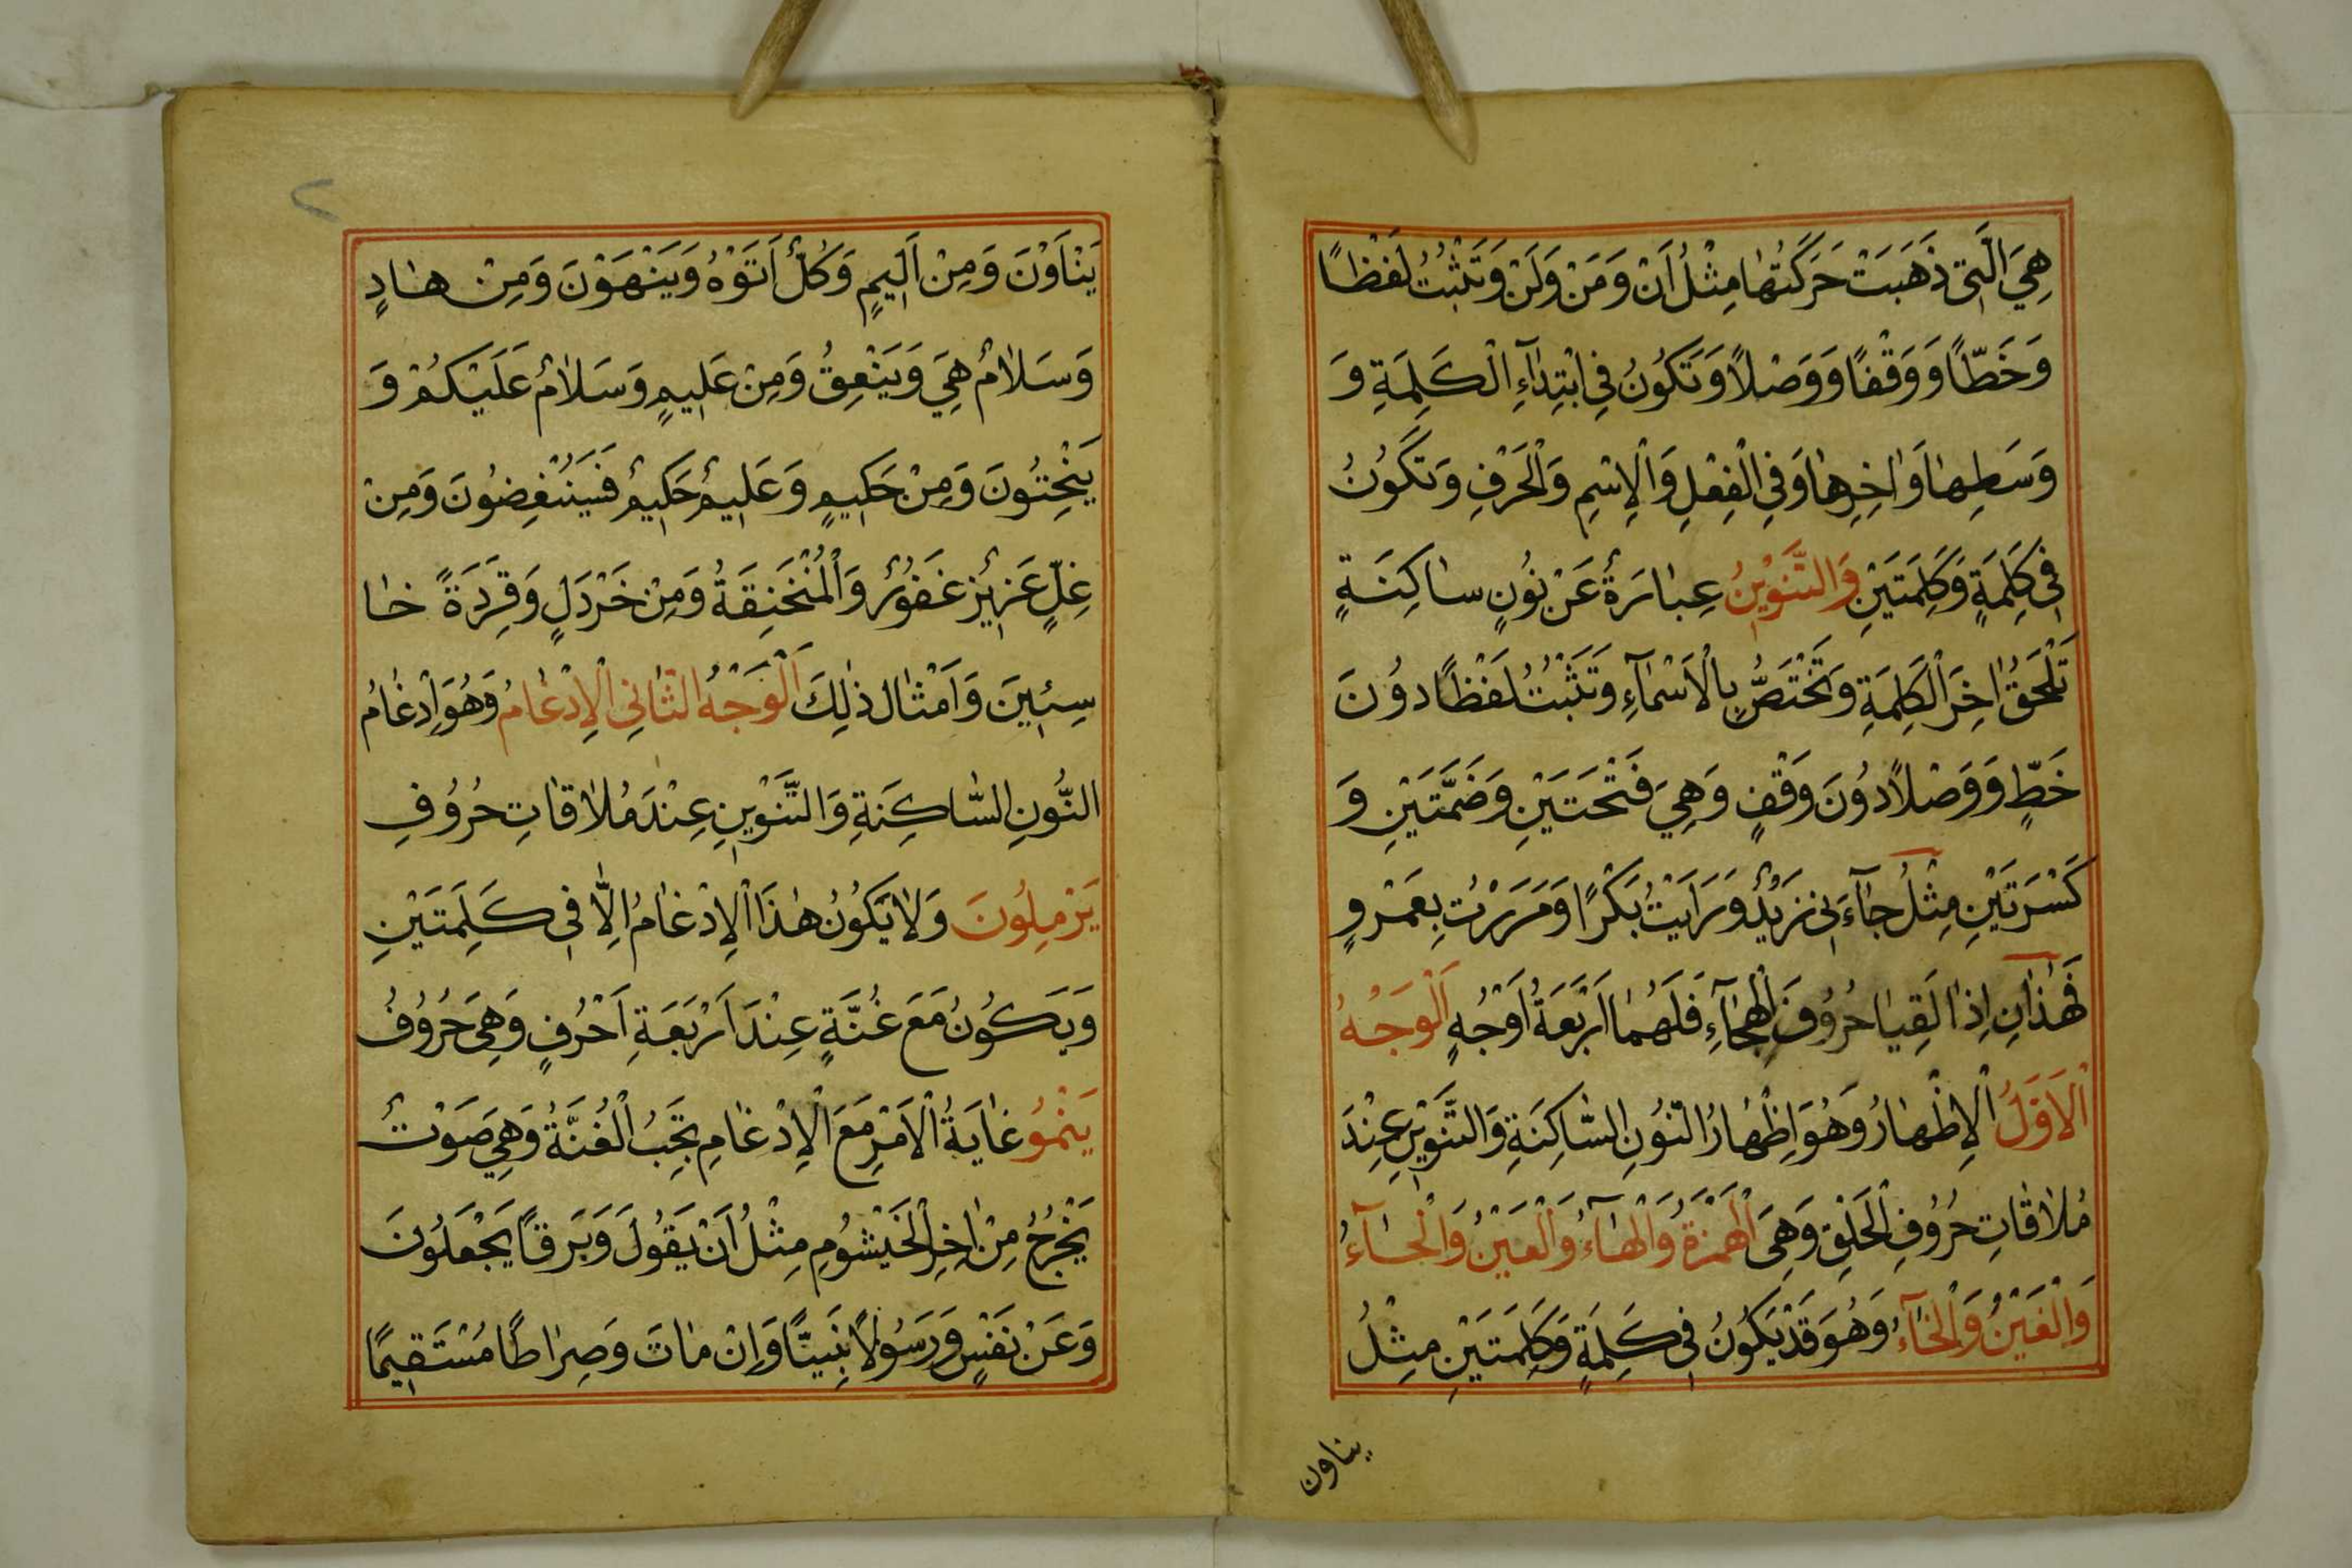 هِيَ الَّتِى ذَهَبَتْ حَرَكَتُهٰا مِثْلُ اَنْ وَمَنْ وَلَنْ وَتَثْبُتُ لَفْظاً
وَخَطّاً وَوَقْفاً وَوَصْلاً وَتَكُونُ فِي ابْتِدٰآءِ الْكَلِمَةِ وَ
وَسَطِهٰا وَاٰخِرِهٰا وَفِي الْفِعْلِ وَالْاِسْمِ وَالْحَرْفِ وَتَكُونُ
فِى كَلِمَةٍ وَكَلِمَتَيْنِ وَالتَّنْوِينُ عِبٰارَةٌ عَنْ نُونٍ سٰاكِنَةٍ
تَلْحَقُ اٰخِرَ الْكَلِمَةِ وَتَخْتَصُّ بِالْاَسْمٰآءِ وَتَثْبُتُ لَفْظاً دُونَ
خَطٍّ وَوَصْلاً دُونَ وَقْفٍ وَهِيَ فَتْحَتَيْنِ وَضَمَّتَيْنِ وَ
كَسْرَتَيْنِ مِثْلُ جٰآءَنِى زَيْدٌ وَرَاَيْتُ بَكْرًا وَمَرَرْتُ بِعَمْرٍو
فَهٰذٰانِ اِذٰا لَقِيٰا حُرُوُفَ الْهِجٰآءِ فَلَهُمٰا اَرْبَعَةُ اَوْجُهٍ اَلْوَجْهُ
الْاَوَّلُ الْاِظْهٰارُ وَهُوَ اِظْهٰارُ النُّونِ السّٰاكِنَةِ وَالتَّنْوِينِ عِنْدَ
مُلٰاقٰاتِ حُرُوُفِ الْحَلْقِ وَهِىَ الْهَمْزَةُ وَالْهٰآءُ وَالْعَيْنُ وَالْحٰآءُ
وَالْغَيْنُ وَالْخٰآءُ وَهُوَ قَدْ يَكُونُ فِى كَلِمَةٍ وَكَلِمَتَيْنِ مِثْلُ
يناون
٢
يَنْاَوْنَ وَمِنْ اَلِيمٍ وَكُلٌّ اَتَوْهُ وَيَنْهَوْنَ وَمِنْ هٰادٍ
وَسَلٰامٌ هِيَ وَيَنْعِقُ وَمِنْ عَلِيمٍ وَسَلٰامٌ عَلَيْكُمْ وَ
يَنْحِتُونَ وَمِنْ حَكِيمٍ وَعَلِيمٌ حَكِيمٌ فَسَيُنْغِضُونَ وَمِنْ
غِلٍّ عَزِيزٌ غَفُورٌ وَالْمُنْخَنِقَةُ وَمِنْ خَرْدَلٍ وَقِرَدَةً خٰا
سِئِينَ وَاَمْثٰالِ ذٰلِكَ اَلْوَجْهُ الثّٰانِى الْاِدْغٰامُ وَهُوَ اِدْغٰامُ
النُّونِ السّٰاكِنَةِ وَالتَّنْوِينِ عِنْدَ مُلٰاقٰاتِ حُرُوُفِ
يَرْمِلُونَ وَلٰا يَكُونُ هٰذَا الْاِدْغٰامُ اِلّٰا فِى كَلِمَتَيْنِ
وَيَكُونُ مَعَ غُنَّةٍ عِنْدَ اَرْبَعَةِ اَحْرُفٍ وَهِىَ حُرُوُفُ
يَنْمُو غٰايَةُ الْاَمْرِ مَعَ الْاِدْغٰامِ تَجِبُ الْغُنَّةُ وَهِيَ صَوْتٌ
يَخْرُجُ مِنْ اٰخِرِ الْخَيْشُومِ مِثْلُ اَنْ يَقُولَ وَبَرْقاً يَجْعَلُونَ
وَعَنْ نَفْسٍ وَرَسُولاً نَبِيّاً وَاِنْ مٰاتَ وَصِرٰاطاً مُسْتَقِيمًا